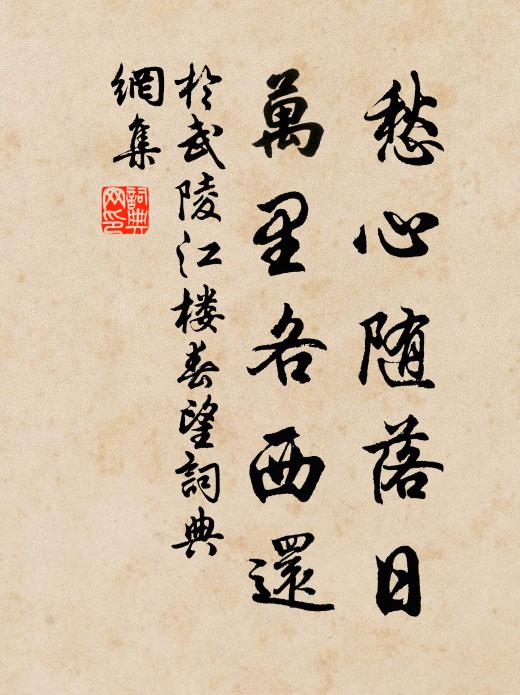 愁心随落日
萬里各西還
於武陵江楼春望詞典
網集
詞典網印